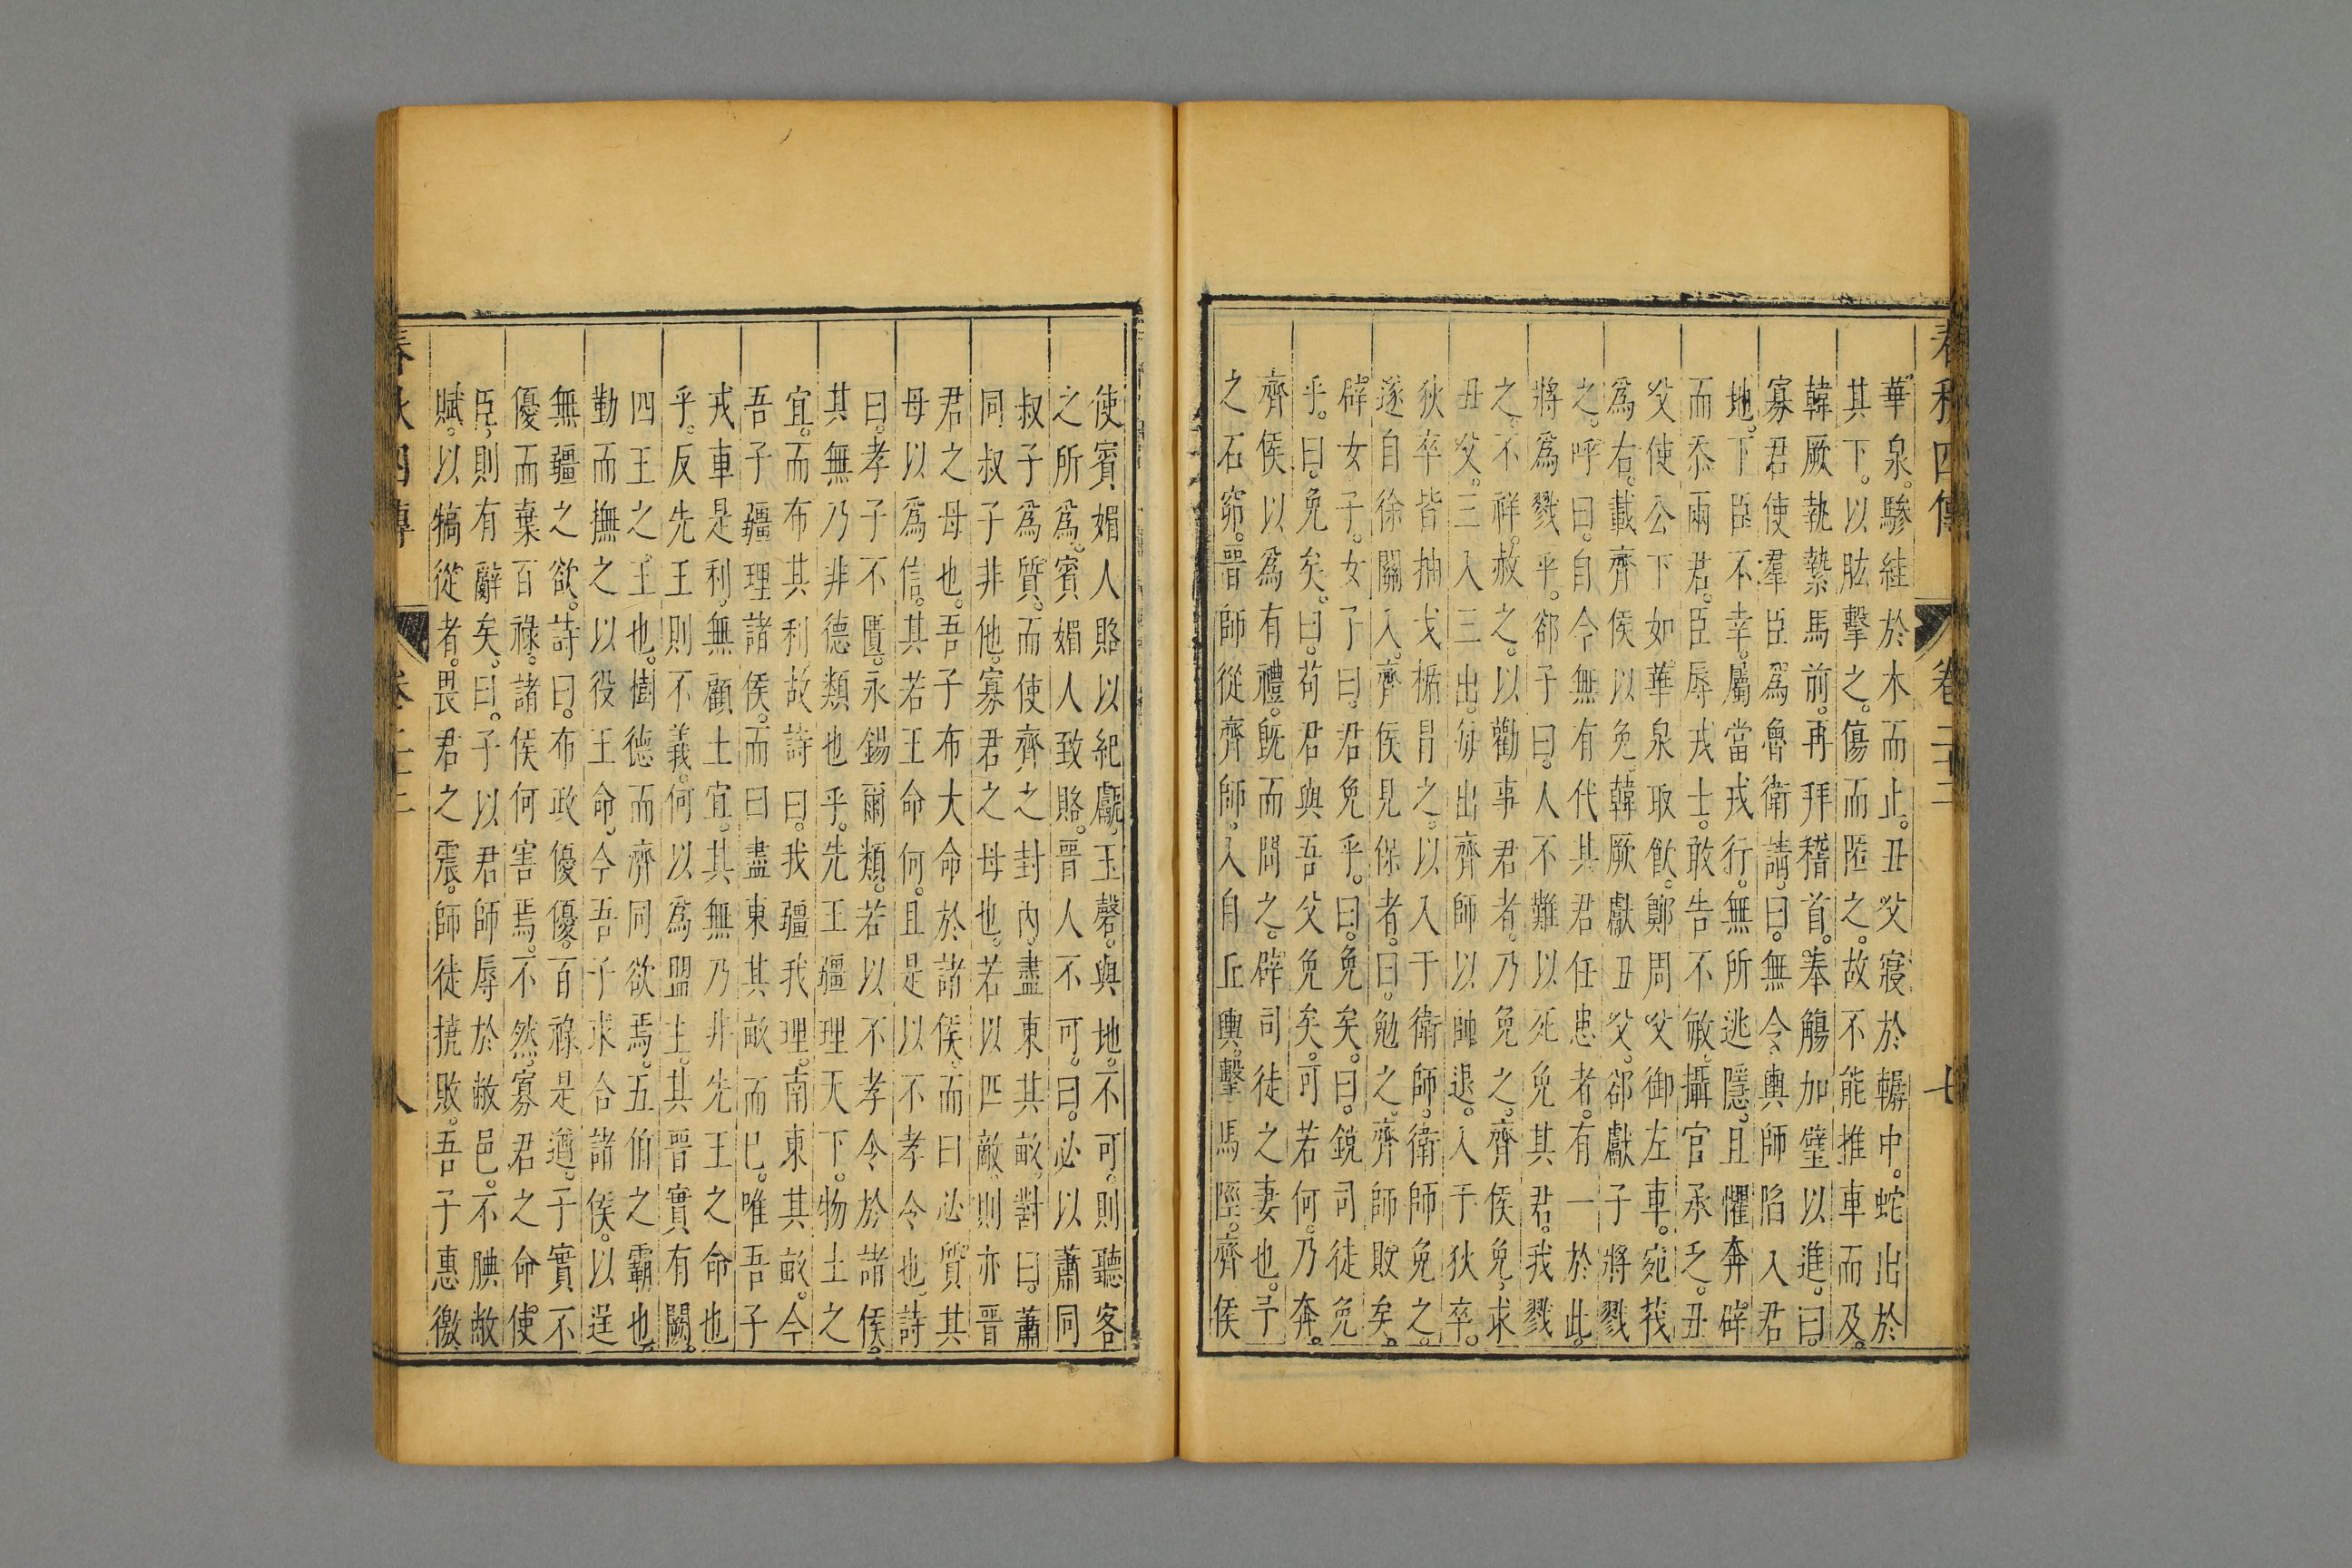 春秋四傳 卷二十二 七
華泉。驂絓於木而止。丑父寢於轏中。蛇出於
其下。以肱擊之。傷而匿之。故不能推車而及。
韓厥執縶馬前。再拜稽首。奉觴加璧以進。曰。
寡君使羣臣爲魯衛請。曰。無令輿師陷入君
地。下臣不幸。屬當戎行。無所逃隱。且懼奔辟
而忝兩君。臣辱戎士。敢告不敏。攝官承乏。丑
父使公下如華泉取飲。鄭周父御左車。宛茷
爲右。載齊侯以免。韓厥獻丑父。郤獻子將戮
之。呼曰。自今無有代其君任患者。有一於此。
將爲戮乎。郤子曰。人不難以死免其君。我戮
之。不祥。赦之。以勸事君者。乃免之。齊侯免。求
丑父。三入三出。每出齊師以帥退。入于狄卒。
狄卒皆抽戈楯冒之。以入于衛師。衛師免之。
遂自徐關入。齊侯見保者。曰。勉之。齊師敗矣。
辟女子。女子曰。君免乎。曰。免矣。曰。銳司徒免
乎。曰。免矣。曰。苟君與吾父免矣。可若何。乃奔。
齊侯以爲有禮。旣而問之。辟司徒之妻也。予
之石窌。晉師從齊師。入自丘輿。擊馬陘。齊侯
使賓媚人賂以紀甗。玉磬。與地。不可。則聽客
之所爲。賓媚人致賂。晉人不可。曰。必以蕭同
叔子爲質。而使齊之封內。盡東其畝。對曰。蕭
同叔子非他。寡君之母也。若以匹敵。則亦晉
君之母也。吾子布大命於諸侯。而曰必質其
母以爲信。其若王命何。且是以不孝令也。詩
曰。孝子不匱。永錫爾類。若以不孝令於諸侯。
其無乃非德類也乎。先王疆理天下。物土之
宜。而布其利。故詩曰。我疆我理。南東其畝。今
吾子疆理諸侯。而曰盡東其畝而已。唯吾子
戎車是利。無顧土宜。其無乃非先王之命也
乎。反先王則不義。何以爲盟主。其晉實有闕。
四王之王也。樹德而濟同欲焉。五伯之霸也。
勤而撫之。以役王命。今吾子求合諸侯。以逞
無疆之欲。詩曰。布政優優。百祿是遒。子實不
優。而棄百祿。諸侯何害焉。不然。寡君之命使
臣。則有辭矣。曰。子以君師辱於敝邑。不腆敝
賦。以犒從者。畏君之震。師徒撓敗。吾子惠徼
春秋四傳 卷二十二 八